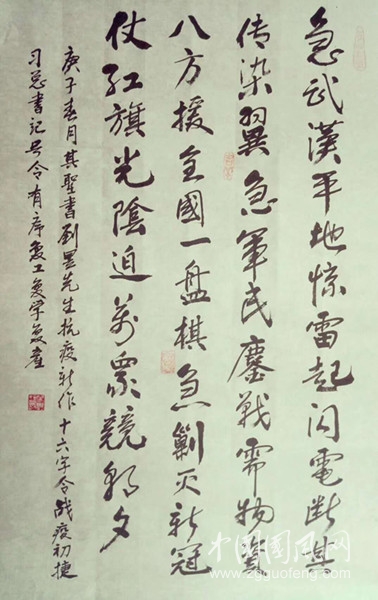 急武漢平地惊雷起闪電断
传染翼急軍民鏖戰需物資
八方援全國一盘棋急剿灭新冠
仗红旗光陰迫萬眾競朝夕
庚子春月其聖書劉墨先生抗疫新作十六字令战疫初捷
习总書记号令有序复工复学复産
中国国风网
www.zgguofeng.com